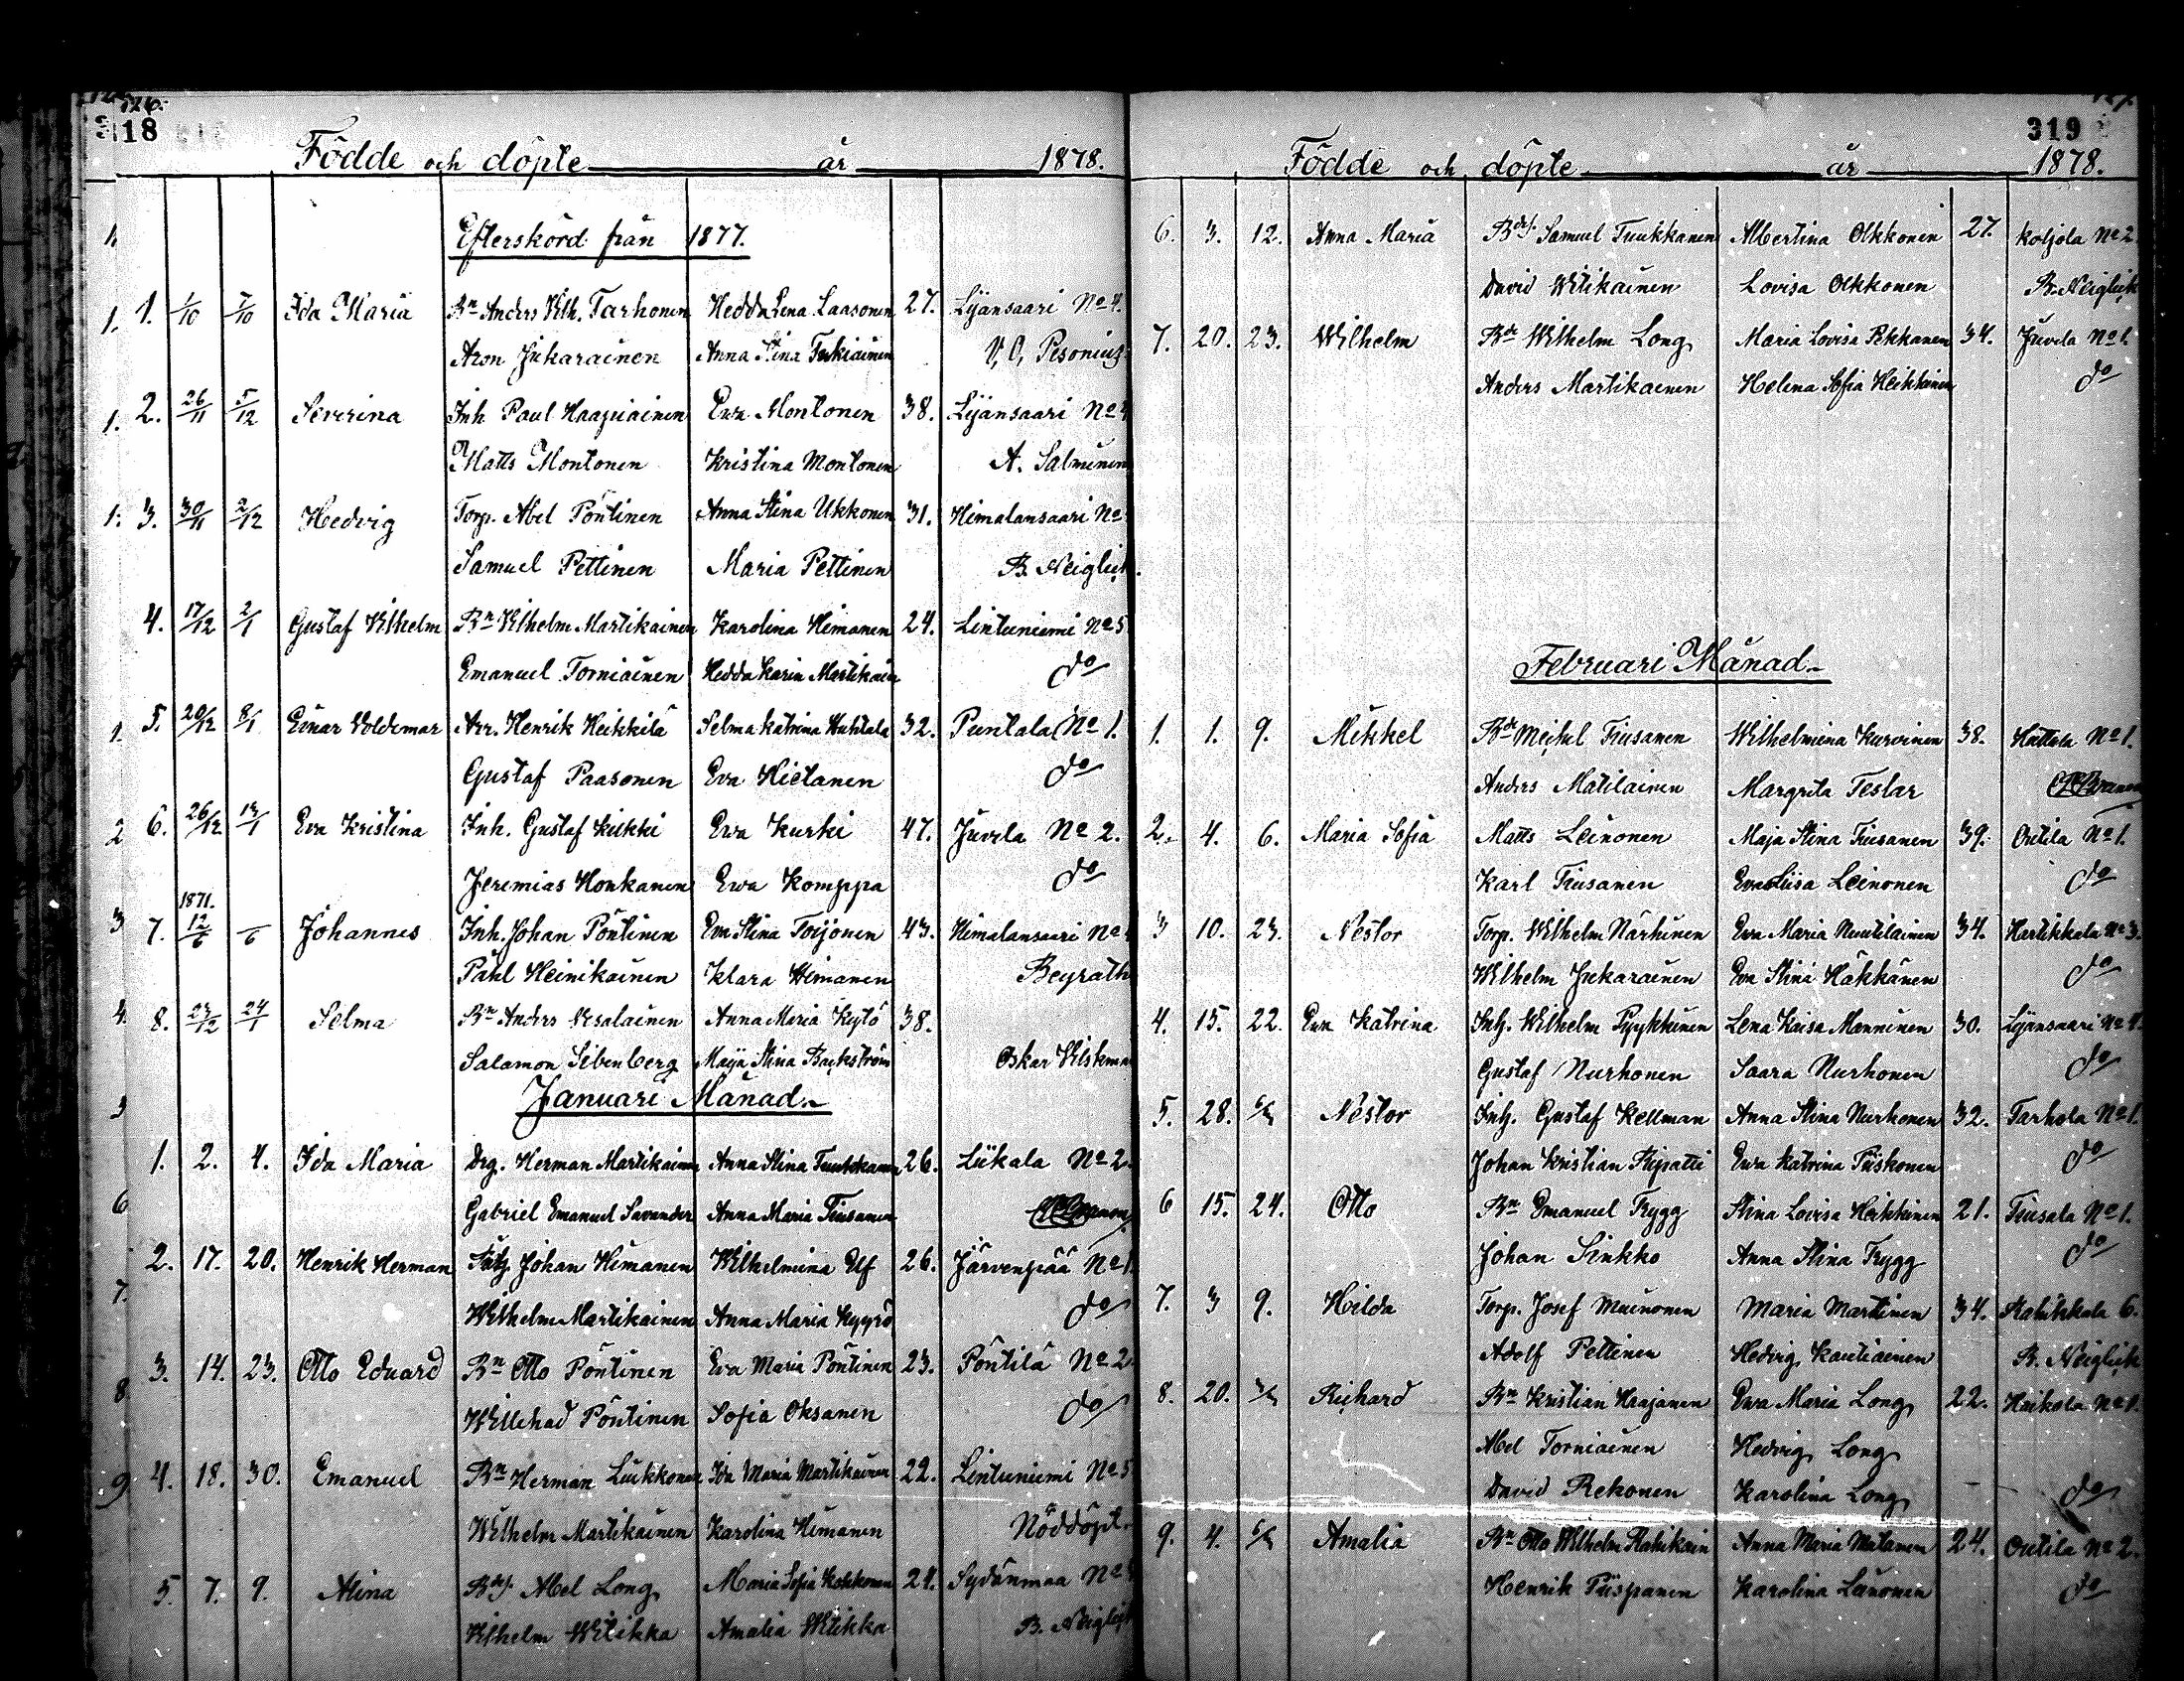 126.
318
Födde och döpte år 1878.
Efterskörd från 1877.
1. 1. 1/10 7/10 Ida Maria Bn Anders Vilh. Tarhonen Hedda Lena Laasonen 27. Lyänsaari No 4.
Aron Jukarainen Anna Stina Turkiainen V. O. Pesonius
1. 2. 26/11 5/12 Severina Inh Paul Haapiainen Eva Montonen 38. Lyänsaari No 4
Matts Montonen Kristina Montonen A. Salminen
1. 3. 30/11 2/12 Hedvig Torp. Abel Pöntinen Anna Stina Ukkonen 31. Himalansaari No
Samuel Pettinen Maria Pettinen B. Neiglick.
4. 17/12 2/1 Gustaf Vilhelm Bn Vilhelm Martikainen Karolina Himanen 24. Lintuniemi No 5
Emanuel Torniainen Hedda Karin Martikain do
1. 5. 20/12 8/1 Einar Voldemar Arr. Henrik Heikkilä Selma Katrina Huhtala 32. Puntala No 1.
Gustaf Paasonen Eva Hietanen do
2 6. 26/12 13/1 Eva Kristina Inh. Gustaf Kukki Eva Kurki 47. Juvela No 2.
Jeremias Honkanen Eva Komppa do
1871.
3 7. 12/6 –/6 Johannes Inh. Johan Pöntinen Eva Stina Toijonen 43. Himalansaari No
Påhl Heinikainen Klara Himanen Beyrath
4. 8. 23/12 24/1 Selma Bn Anders Vesalainen Anna Maria Kytö 38.
Salamon Sibenberg Maija Stina Backström Oskar Vilskman
Januari Månad
1. 2. 4. Ida Maria Drg. Herman Martikainen Anna Stina Tuukkanen 26. Liikala No 2.
Gabriel Emanuel Savander Anna Maria Tiusanen
2. 17. 20. Henrik Herman Johan Himanen Wilhelmina Elf 26. Järvenpää No 1
Wilhelm Martikainen Anna Maria Kyyrö do
3. 14. 23. Otto Eduard Bn Otto Pöntinen Eva Maria Pöntinen 23. Pöntilä No 2
Willehad Pöntinen Sofia Oksanen do
4. 18. 30. Emanuel Bn Herman Liukkonen Ida Maria Martikainen 22. Lintuniemi No 5
Wilhelm Martikainen Karolina Himanen Nöddöpt.
5. 7. 9. Alina Bdsf. Abel Long Maria Sofia Kokkonen 24. Sydänmaa No
Vilhelm Wilikka Amalia Wilikka B. Neiglick
319
Födde och döpte år 1878.
6. 3. 12. Anna Maria Bdsf. Samuel Tuukkanen Albertina Olkkonen 27. Koljola No 2
David Witikainen Lovisa Olkkonen B. Neiglick
7. 20. 23. Wilhelm Bde Wilhelm Long Maria Lovisa Pekkanen 34. Juvela No 1.
Anders Martikainen Helena Sofia Heikkinen do
Februari Månad
1. 1. 9. Mikkel Bde Michel Tiusanen Wilhelmina Kurvinen 38. Hattola No 1.
Anders Matilainen Margreta Teslar
2. 4. 6. Maria Sofia Matts Leinonen Maja Stina Tiusanen 39. Outila No 1.
Karl Tiusanen Eva Liisa Leinonen do
3 10. 23. Nestor Torp. Wilhelm Närhinen Eva Maria Nuutilainen 34. Hartikkala No 3.
Wilhelm Jukarainen Eva Stina Häkkänen do
4. 15. 22. Eva Katrina Inh. Wilhelm Pyykkinen Lena Kaisa Manninen 30. Lyänsaari No 4.
Gustaf Nurhonen Saara Nurhonen do
5. 28. Nestor Inh. Gustaf Kellman Anna Stina Nurhonen 32. Tarhola No 1.
Johan Kristian Ripatti Eva Katrina Piiskonen do
6 15. 24. Otto Bn Emanuel Trygg Stina Lovisa Heikkinen 21. Tiusala No 1.
Johan Sinkko Anna Stina Trygg do
7. 3 9. Hilda Torp. Josef Muinonen Maria Martinen 34. Rahikkala 6.
Adolf Pettinen Hedvig Kautiainen B. Neiglick
8. 20. Richard Bn Kristian Haajanen Eva Maria Long 22. Haikola No 1.
Abel Torniainen Hedvig Long
David Rekonen Karolina Long do
9. 4. Amalia Bn Otto Wilhelm Rahikain Anna Maria Matanen 24. Outila No 2.
Henrik Piispanen Karolina Leinonen do